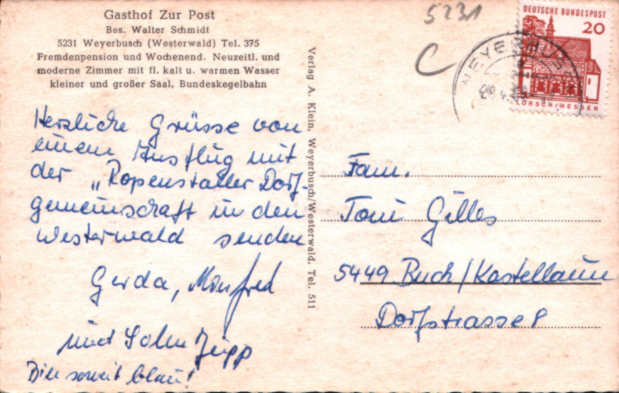 Gasthof Zur Post
Bes. Walter Schmidt
5231 Weyerbusch (Westerwald) Tel. 375
Fremdenpension und Wochenend. Neuzeitl. und
moderne Zimmer mit fl. kalt u. warmen Wasser
kleiner und großer Saal, Bundeskegelbahn
5231
C
DEUTSCHE BUNDESPOST
20
LORSCH/HESSEN
WEYERBUSCH
Verlag A. Klein, Weyerbusch/Westerwald, Tel. 511
Herzliche Grüsse von
einem Ausflug mit
der „Ropenstaller Dorf-
gemeinschaft in den
Westerwald senden
Gerda, Manfred
und Sohn Jupp
Bin soweit blau!
Fam.
Toni Gilles
5449 Buch/Kastellaun
Dorfstrasse 8